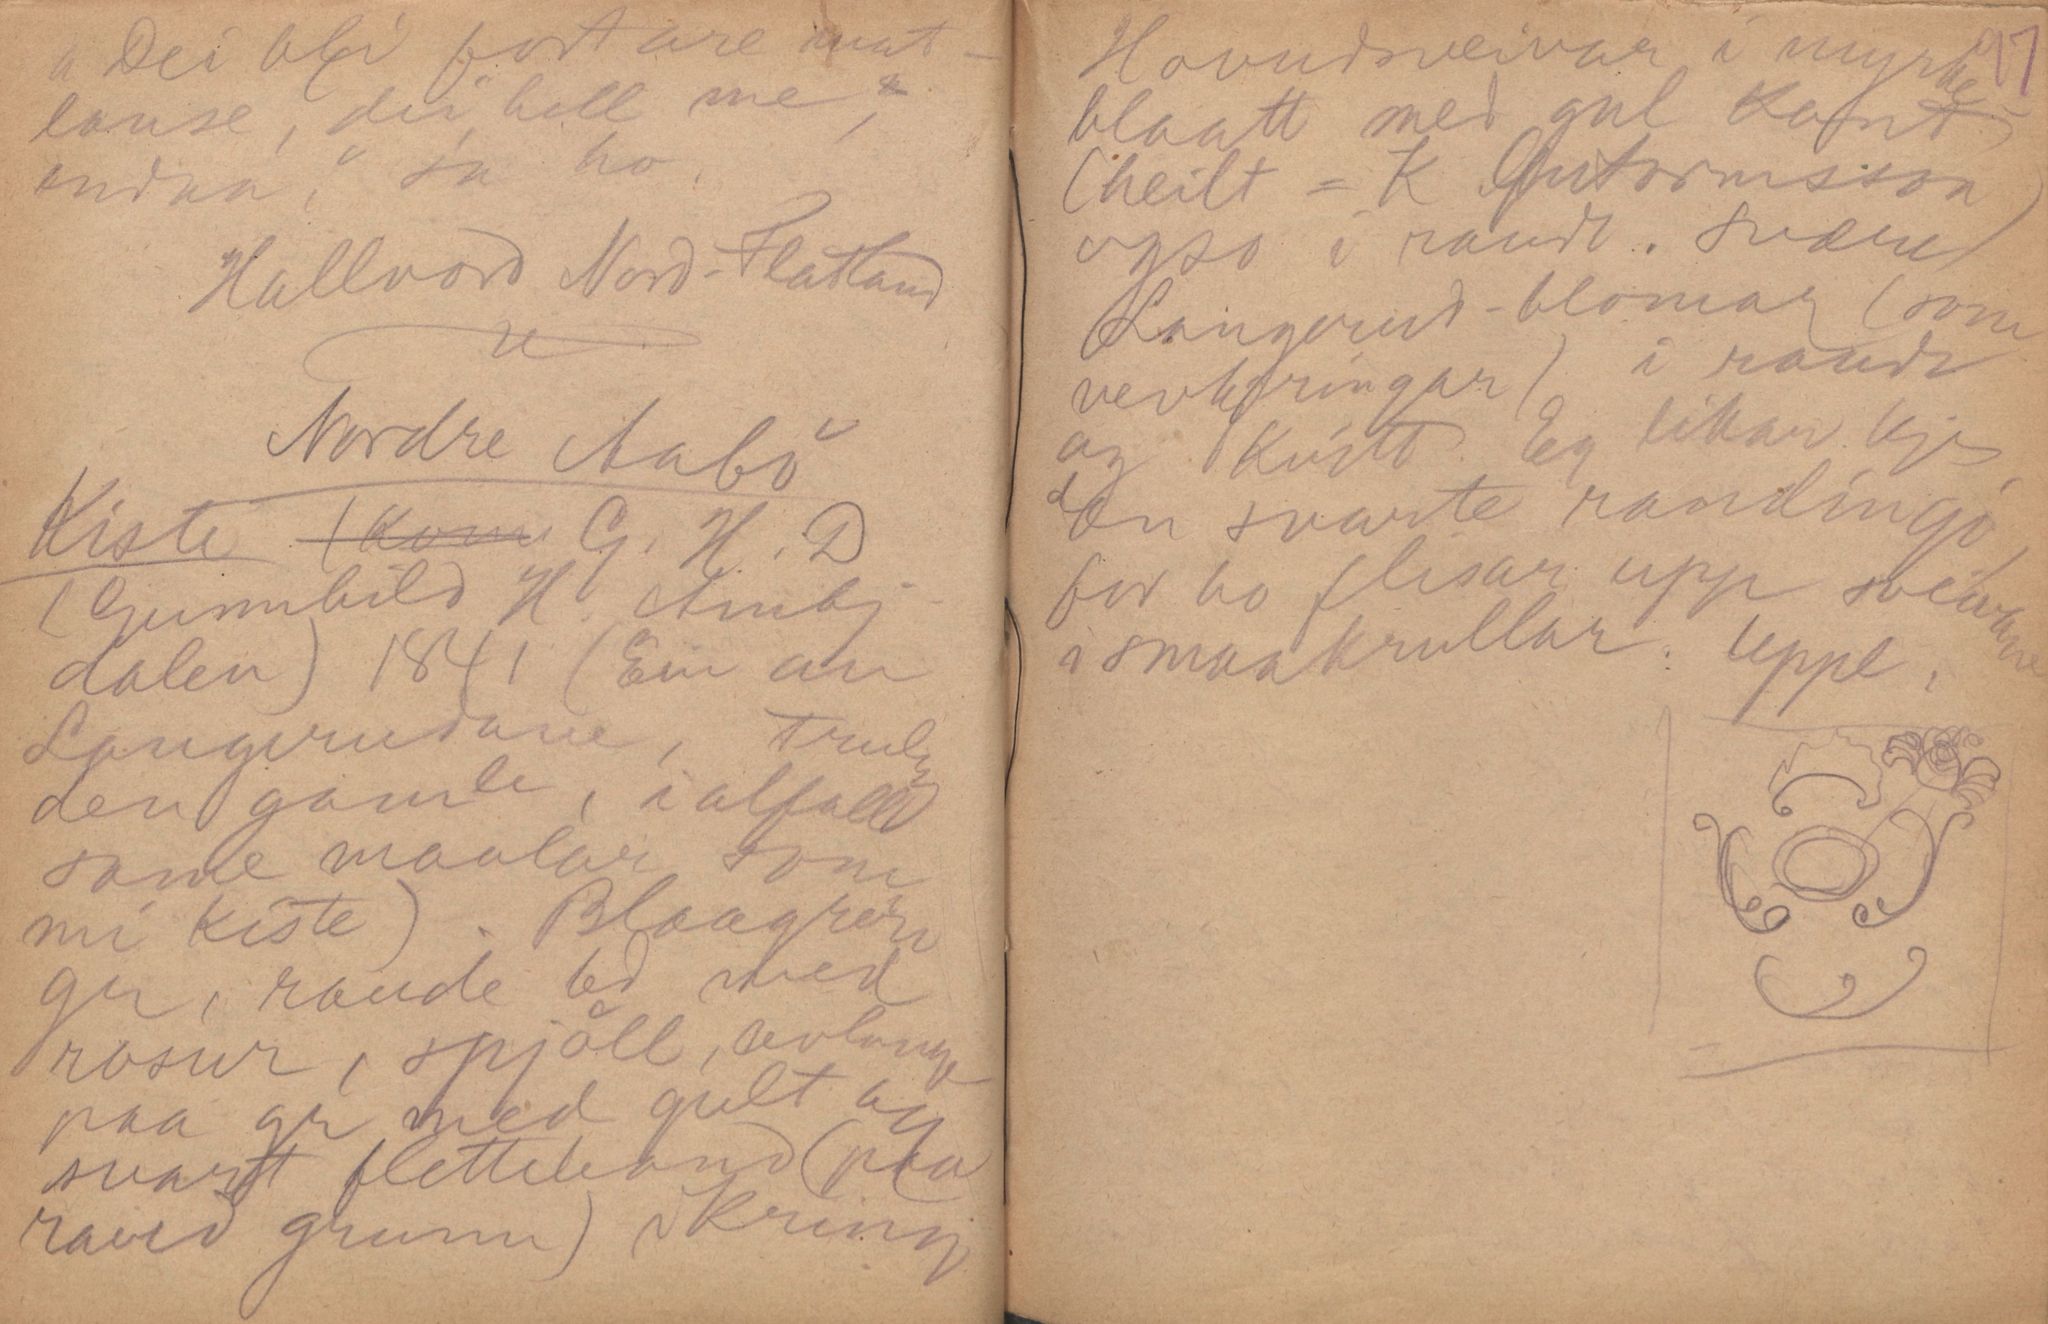 "Dei bli fortare mat-
lause, dei hell me,
endaa," sa ho.
Hallvord Nord-Flatland
Nordre Aabö
Kiste (Kom G. H. D
(Gunnhild H. Ambj-
dalen) 1841 (Ein av
Langerudane, truleg
den gamle, ialfall
same maalar som
mi kiste). Blaagrön
gr, raude bd med
rosur, spjöll, avlange
paa gr med gult og
svart fletteband (paa
raud grunn) ikring
97
Hovudsveivar i myrke-
blaatt med gul kant,
(heilt = K Gutormsson)
ogso i raudt. Svære
Langerud-blomar (som
i raudt
og kvitt. Eg likar kje
den svarte randingi,
for ho flisar upp sveivane
i smaakrullar. Uppl.